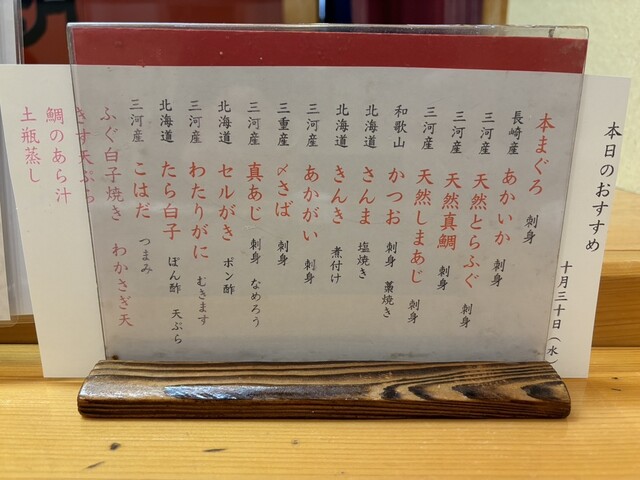 本日のおすすめ
十月三十日（水）
本まぐろ 刺身
長崎産 あかいか 刺身
三河産 天然とらふぐ 刺身
三河産 天然真鯛 刺身
三河産 天然しまあじ 刺身
和歌山 かつお 刺身 藁焼き
北海道 さんま 塩焼き
北海道 きんき 煮付け
三河産 あかがい 刺身
三重産 〆さば 刺身
三河産 真あじ 刺身 なめろう
北海道 セルがき ポン酢
三河産 わたりがに むきます
北海道 たら白子 ぽん酢 天ぷら
三河産 こはだ つまみ
ふぐ白子焼き わかさぎ天
きす天ぷら
鯛のあら汁
土瓶蒸し